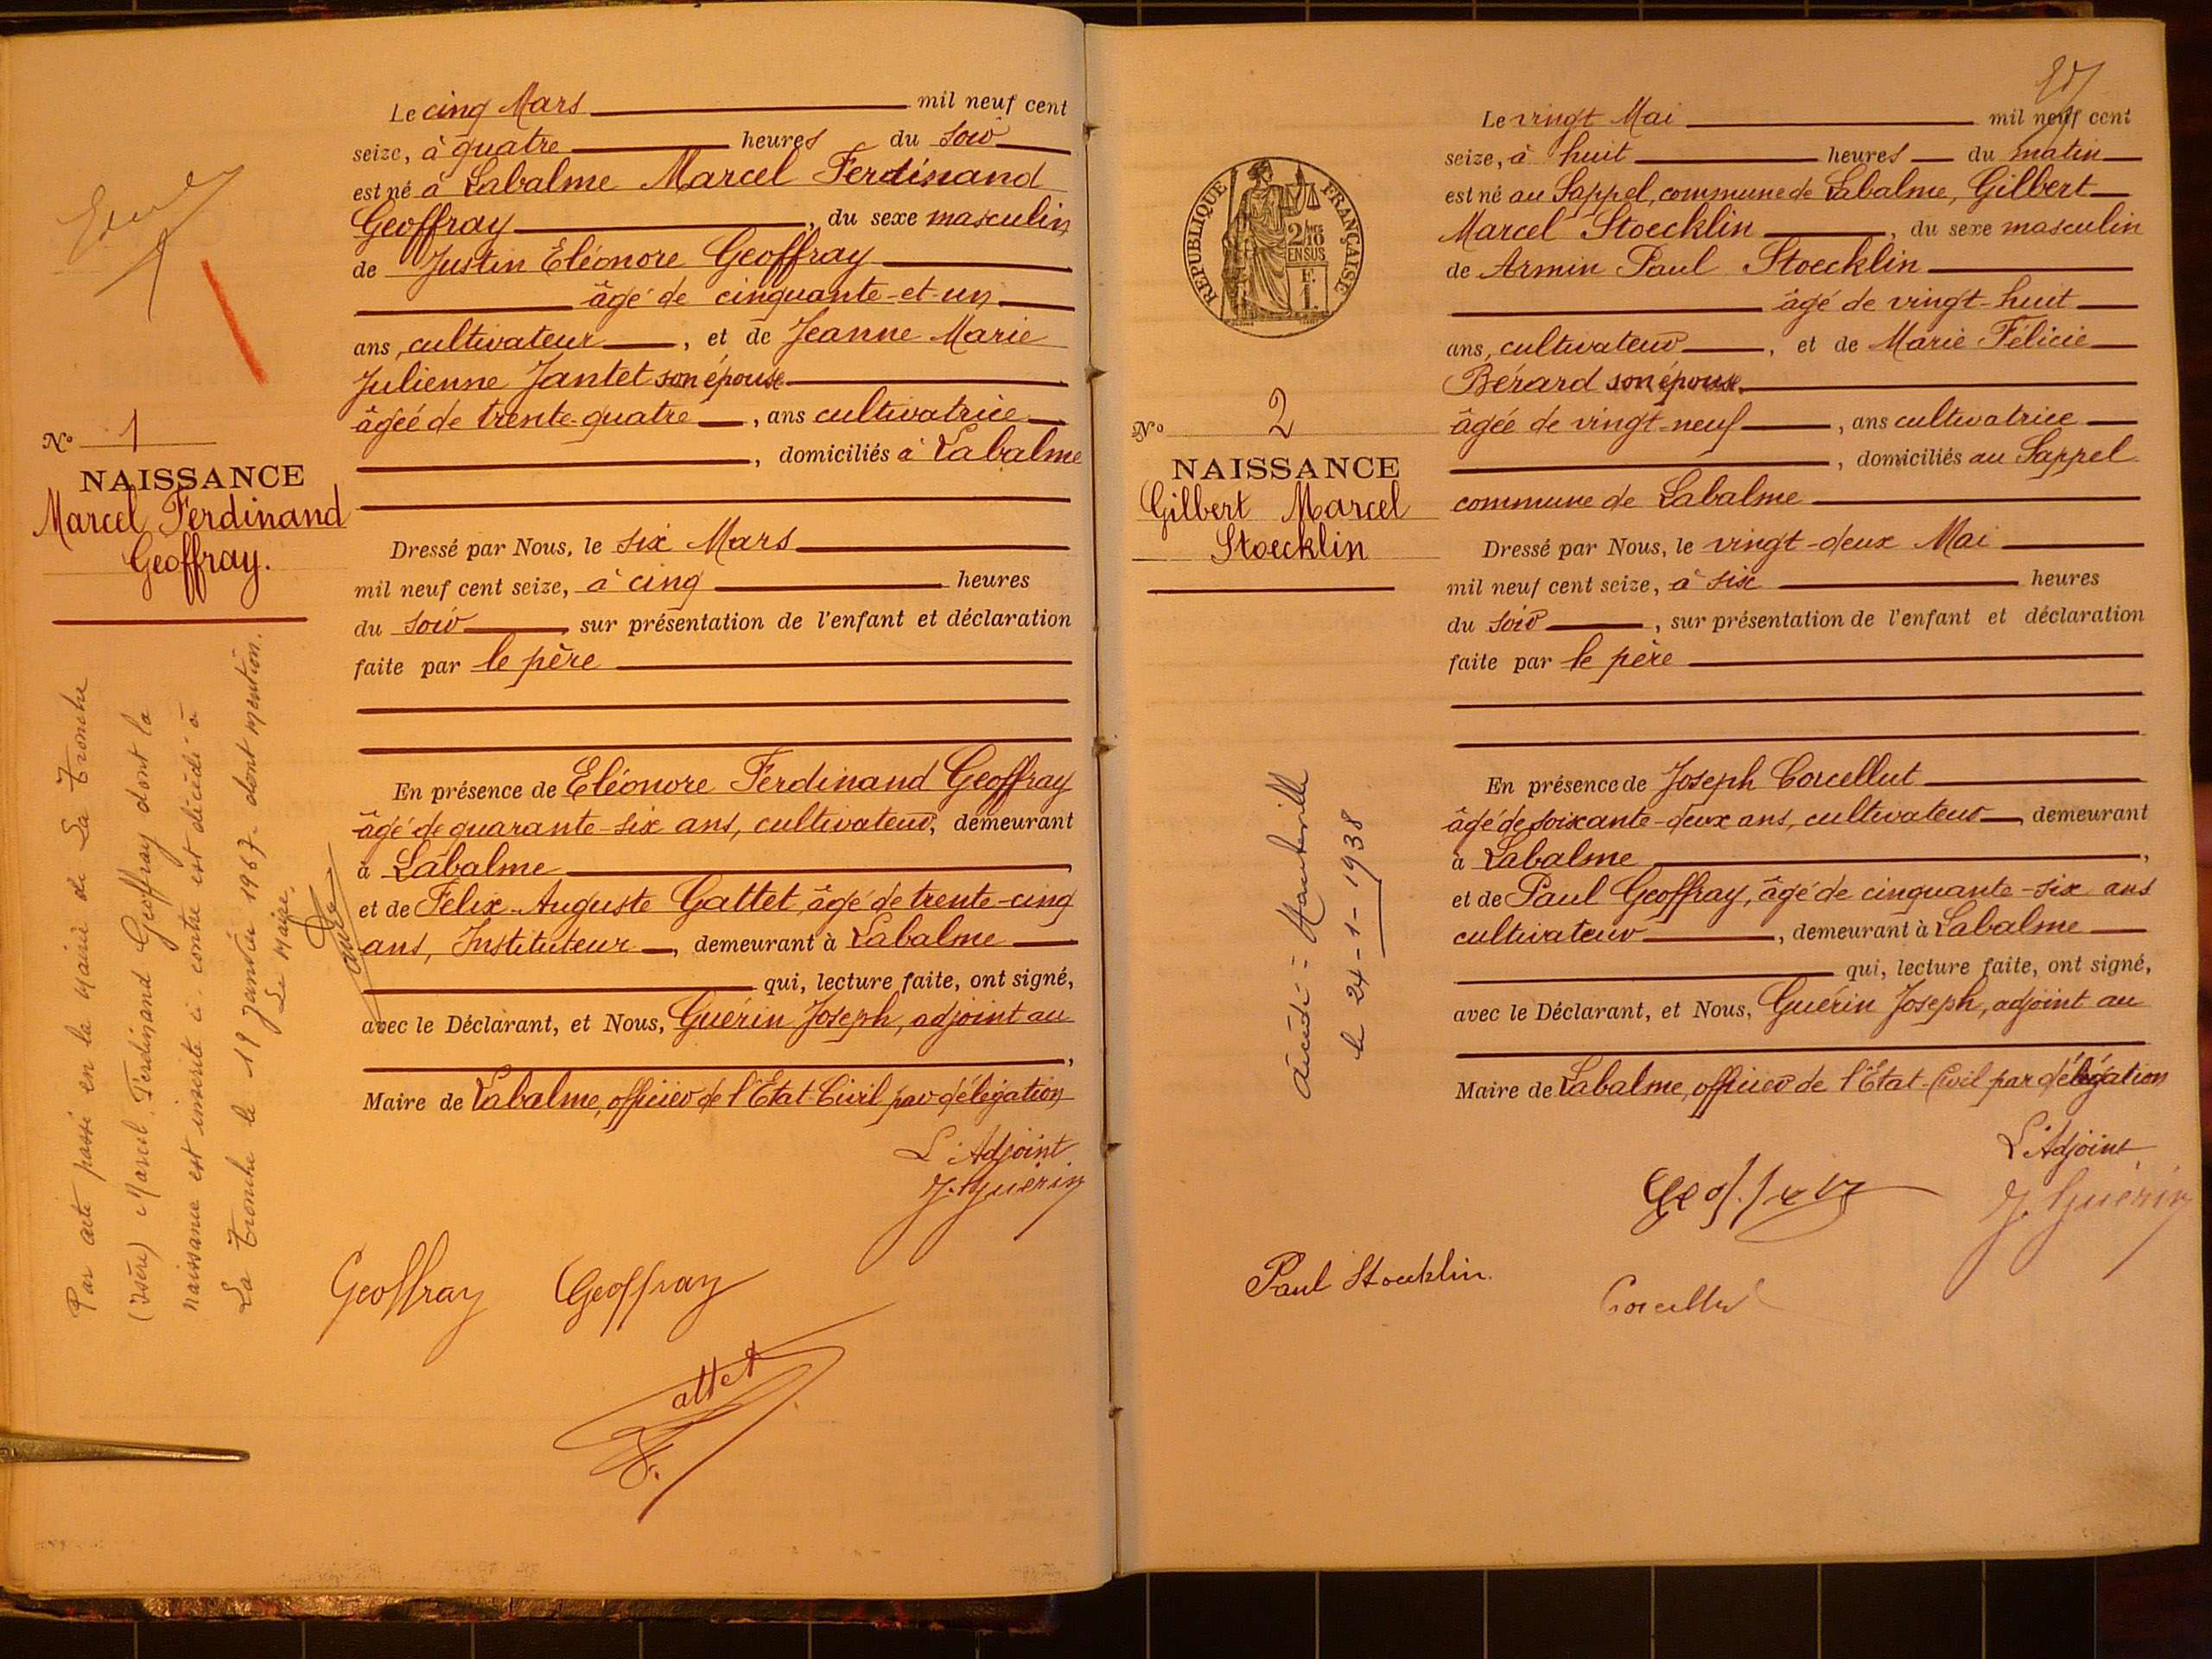 Le cinq Mars mil neuf cent
seize, à quatre heures du soir
est né à Labalme Marcel Ferdinand
Geoffray, du sexe masculin
de Justin Eléonore Geoffray
âgé de cinquante-et-un
ans, cultivateur, et de Jeanne Marie
Julienne Jantet son épouse
âgée de trente-quatre, ans cultivatrice
, domiciliés à Labalme
Dressé par Nous, le six Mars
mil neuf cent seize, à cinq heures
du soir, sur présentation de l'enfant et déclaration
faite par le père
En présence de Eléonore Ferdinand Geoffray
âgé de quarante-six ans, cultivateur, demeurant
à Labalme,
et de Felix-Auguste Gattet, âgé de trente-cinq
ans, Instituteur, demeurant à Labalme
qui, lecture faite, ont signé,
avec le Déclarant, et Nous, Guérin Joseph, adjoint au
,
Maire de Labalme, officier de l'Etat-Civil par délégation
L'Adjoint
J. Guérin
Geoffray Geoffray
Gattet
F.
N° 1
NAISSANCE
Marcel Ferdinand
Geoffray.
Par acte passé en la Mairie de La Tronche
(Isère) Marcel Ferdinand Geoffray dont la
naissance est inscrite ci-contre est décédé à
La Tronche le 19 janvier 1967. dont mention.
Le Maire.
Le vingt Mai mil neuf cent
seize, à huit heures du matin
est né au Sappel, commune de Labalme, Gilbert
Marcel Stoecklin, du sexe masculin
de Armin Paul Stoecklin
âgé de vingt-huit
ans, cultivateur, et de Marie Félicie
Bérard son épouse
âgée de vingt-neuf, ans cultivatrice
, domiciliés au Sappel
commune de Labalme
Dressé par Nous, le vingt-deux Mai
mil neuf cent seize, à six heures
du soir, sur présentation de l'enfant et déclaration
faite par le père
En présence de Joseph Corcellut
âgé de soixante-deux ans, cultivateur, demeurant
à Labalme,
et de Paul Geoffray, âgé de cinquante-six ans
cultivateur, demeurant à Labalme
qui, lecture faite, ont signé,
avec le Déclarant, et Nous, Guérin Joseph, adjoint au
Maire de Labalme, officier de l'Etat-Civil par délégation
L'Adjoint
J. Guérin
Geoffray
Paul Stoecklin.
Corcellut
RÉPUBLIQUE FRANÇAISE
2/10
EN SUS
F.
1.
N° 2
NAISSANCE
Gilbert Marcel
Stoecklin
décédé à Hauteville
le 24-1-1938